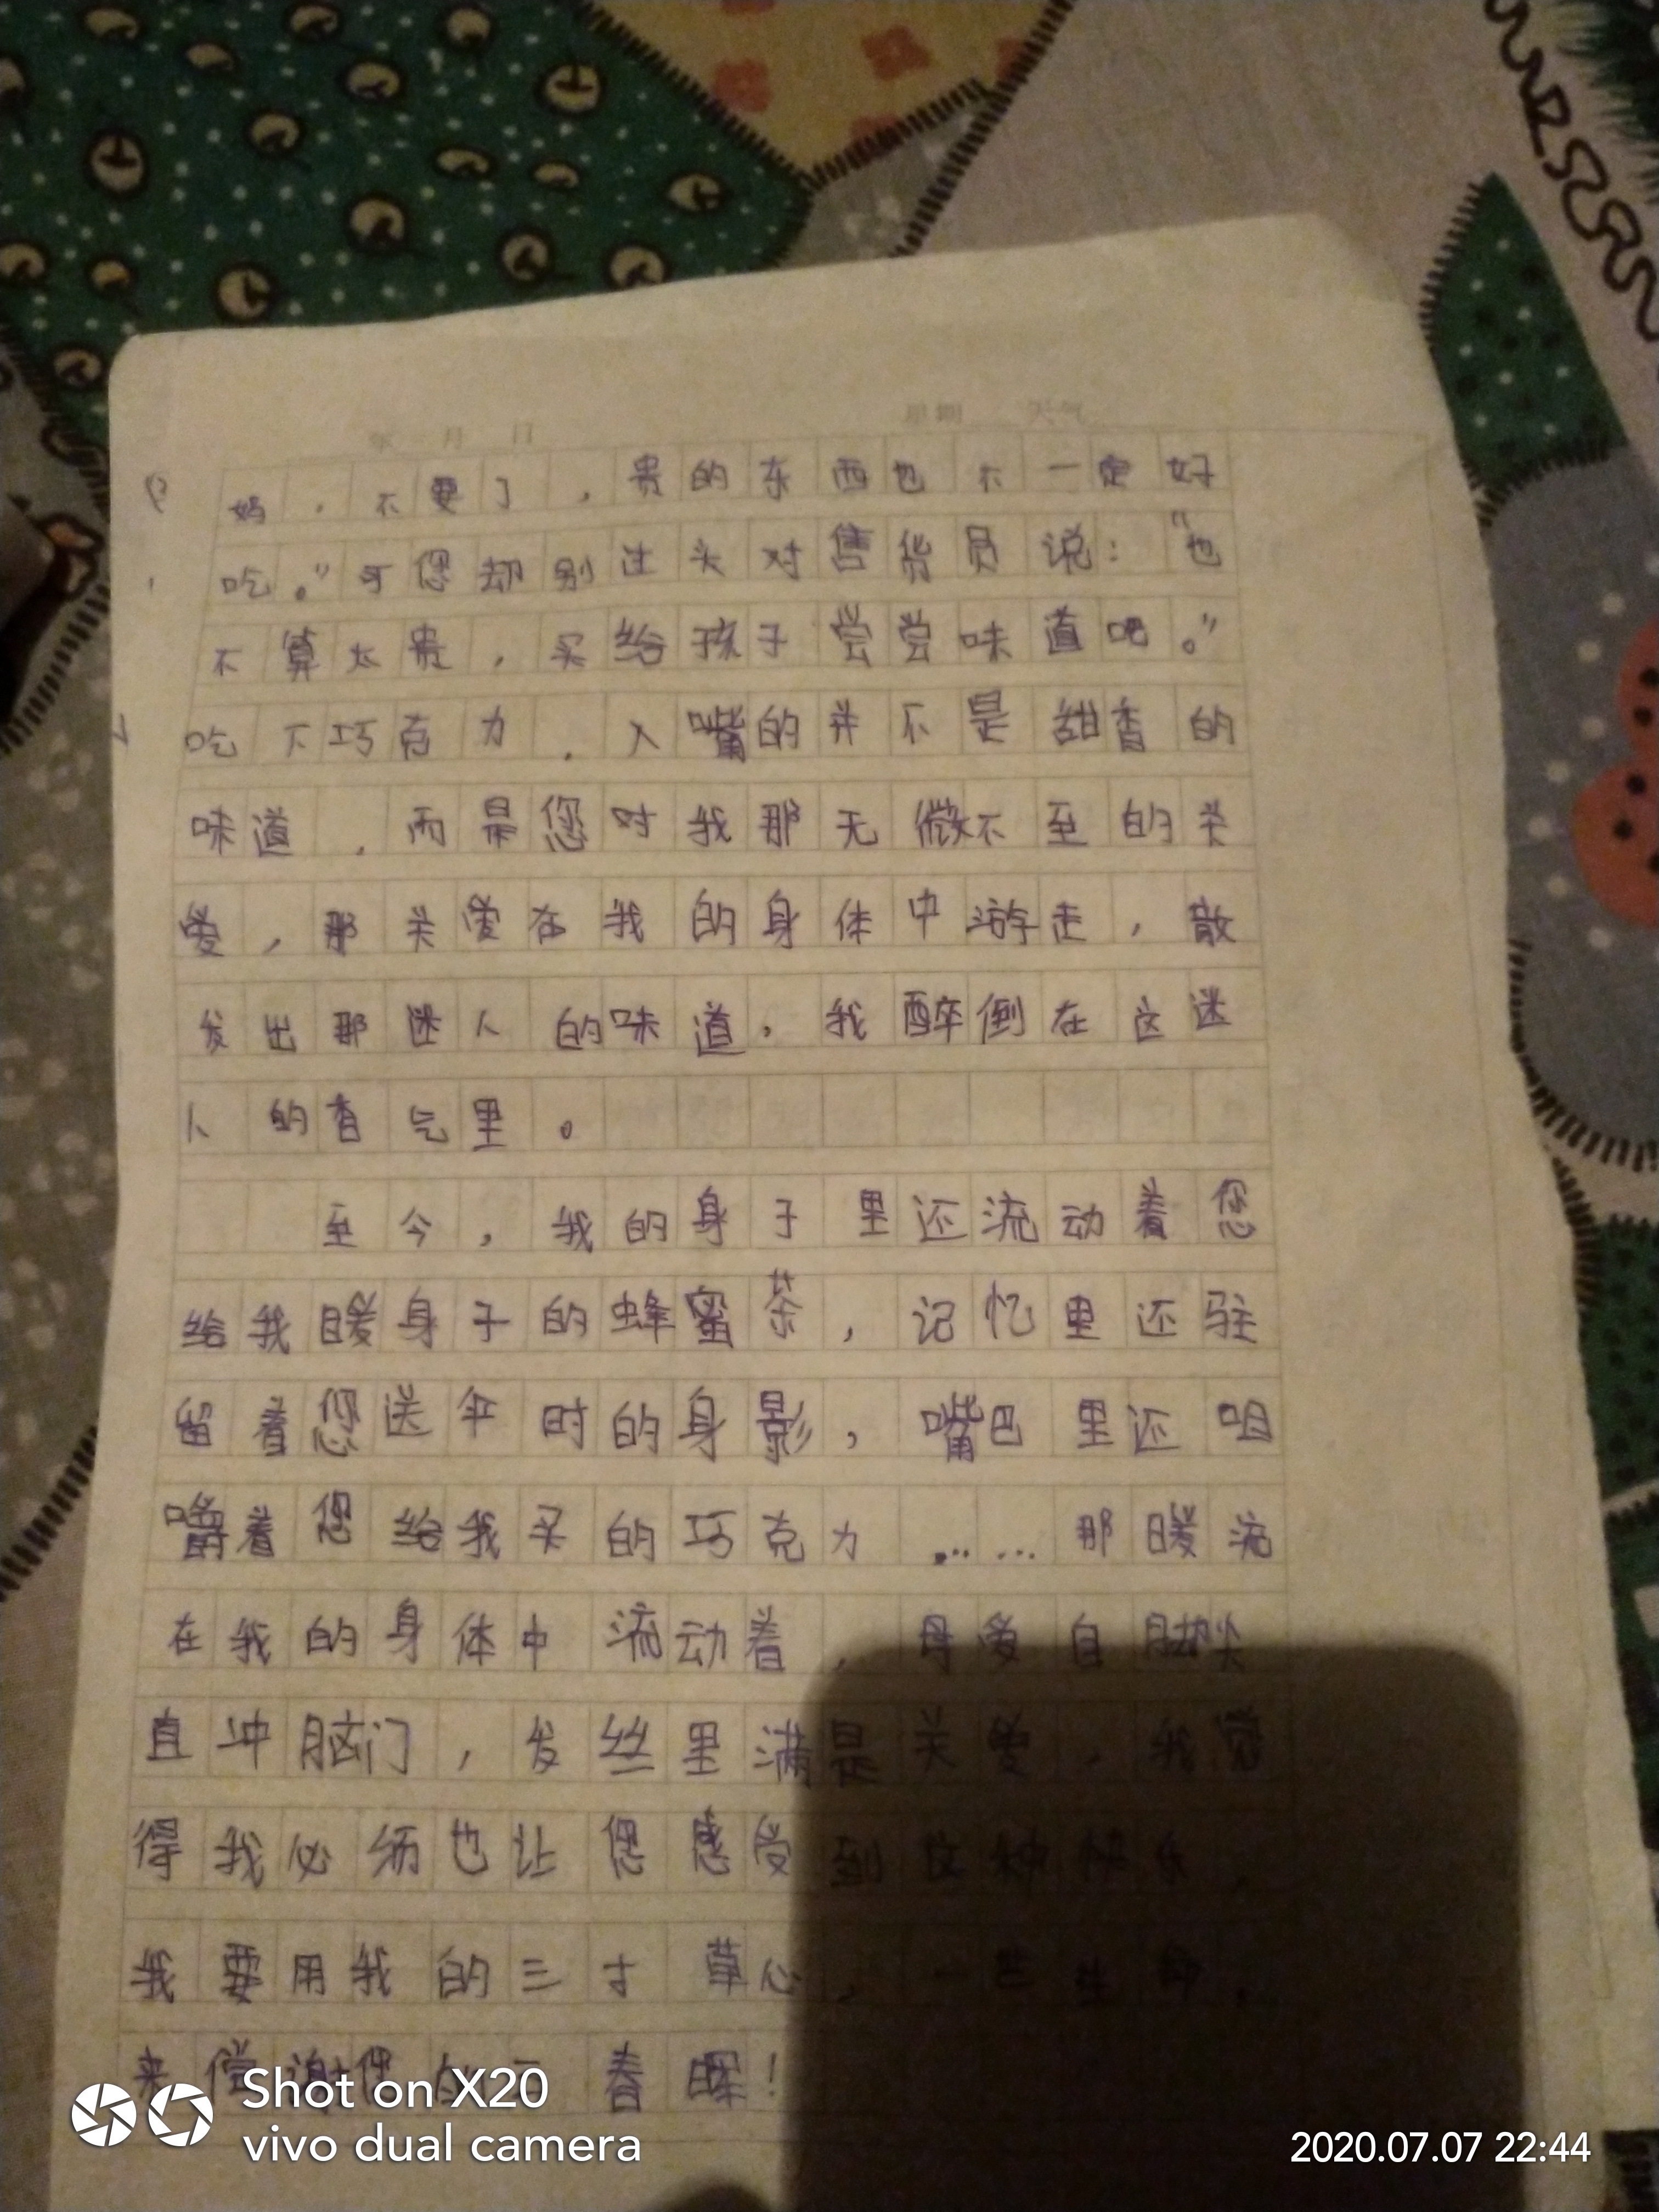 年 月 日 星期 天气
妈，不要了，贵的东西也不一定好
吃。”可您却别过头对售货员说：“也
不算太贵，买给孩子尝尝味道吧。”
吃下巧克力，入嘴的并不是甜香的
味道，而是您对我那无微不至的关
爱，那关爱在我的身体中游走，散
发出那迷人的味道，我醉倒在这迷
人的香气里。
至今，我的身子里还流动着您
给我暖身子的蜂蜜茶，记忆里还驻
留着您送伞时的身影，嘴巴里还咀
嚼着您给我买的巧克力……那暖流
在我的身体中流动着，母爱自脚尖
直冲脑门，发丝里满是关爱，我觉
得我必须也让您感受到这种快乐，
我要用我的三寸草心，一世生命，
来偿谢您的三春晖！
Shot on X20
vivo dual camera
2020.07.07 22:44